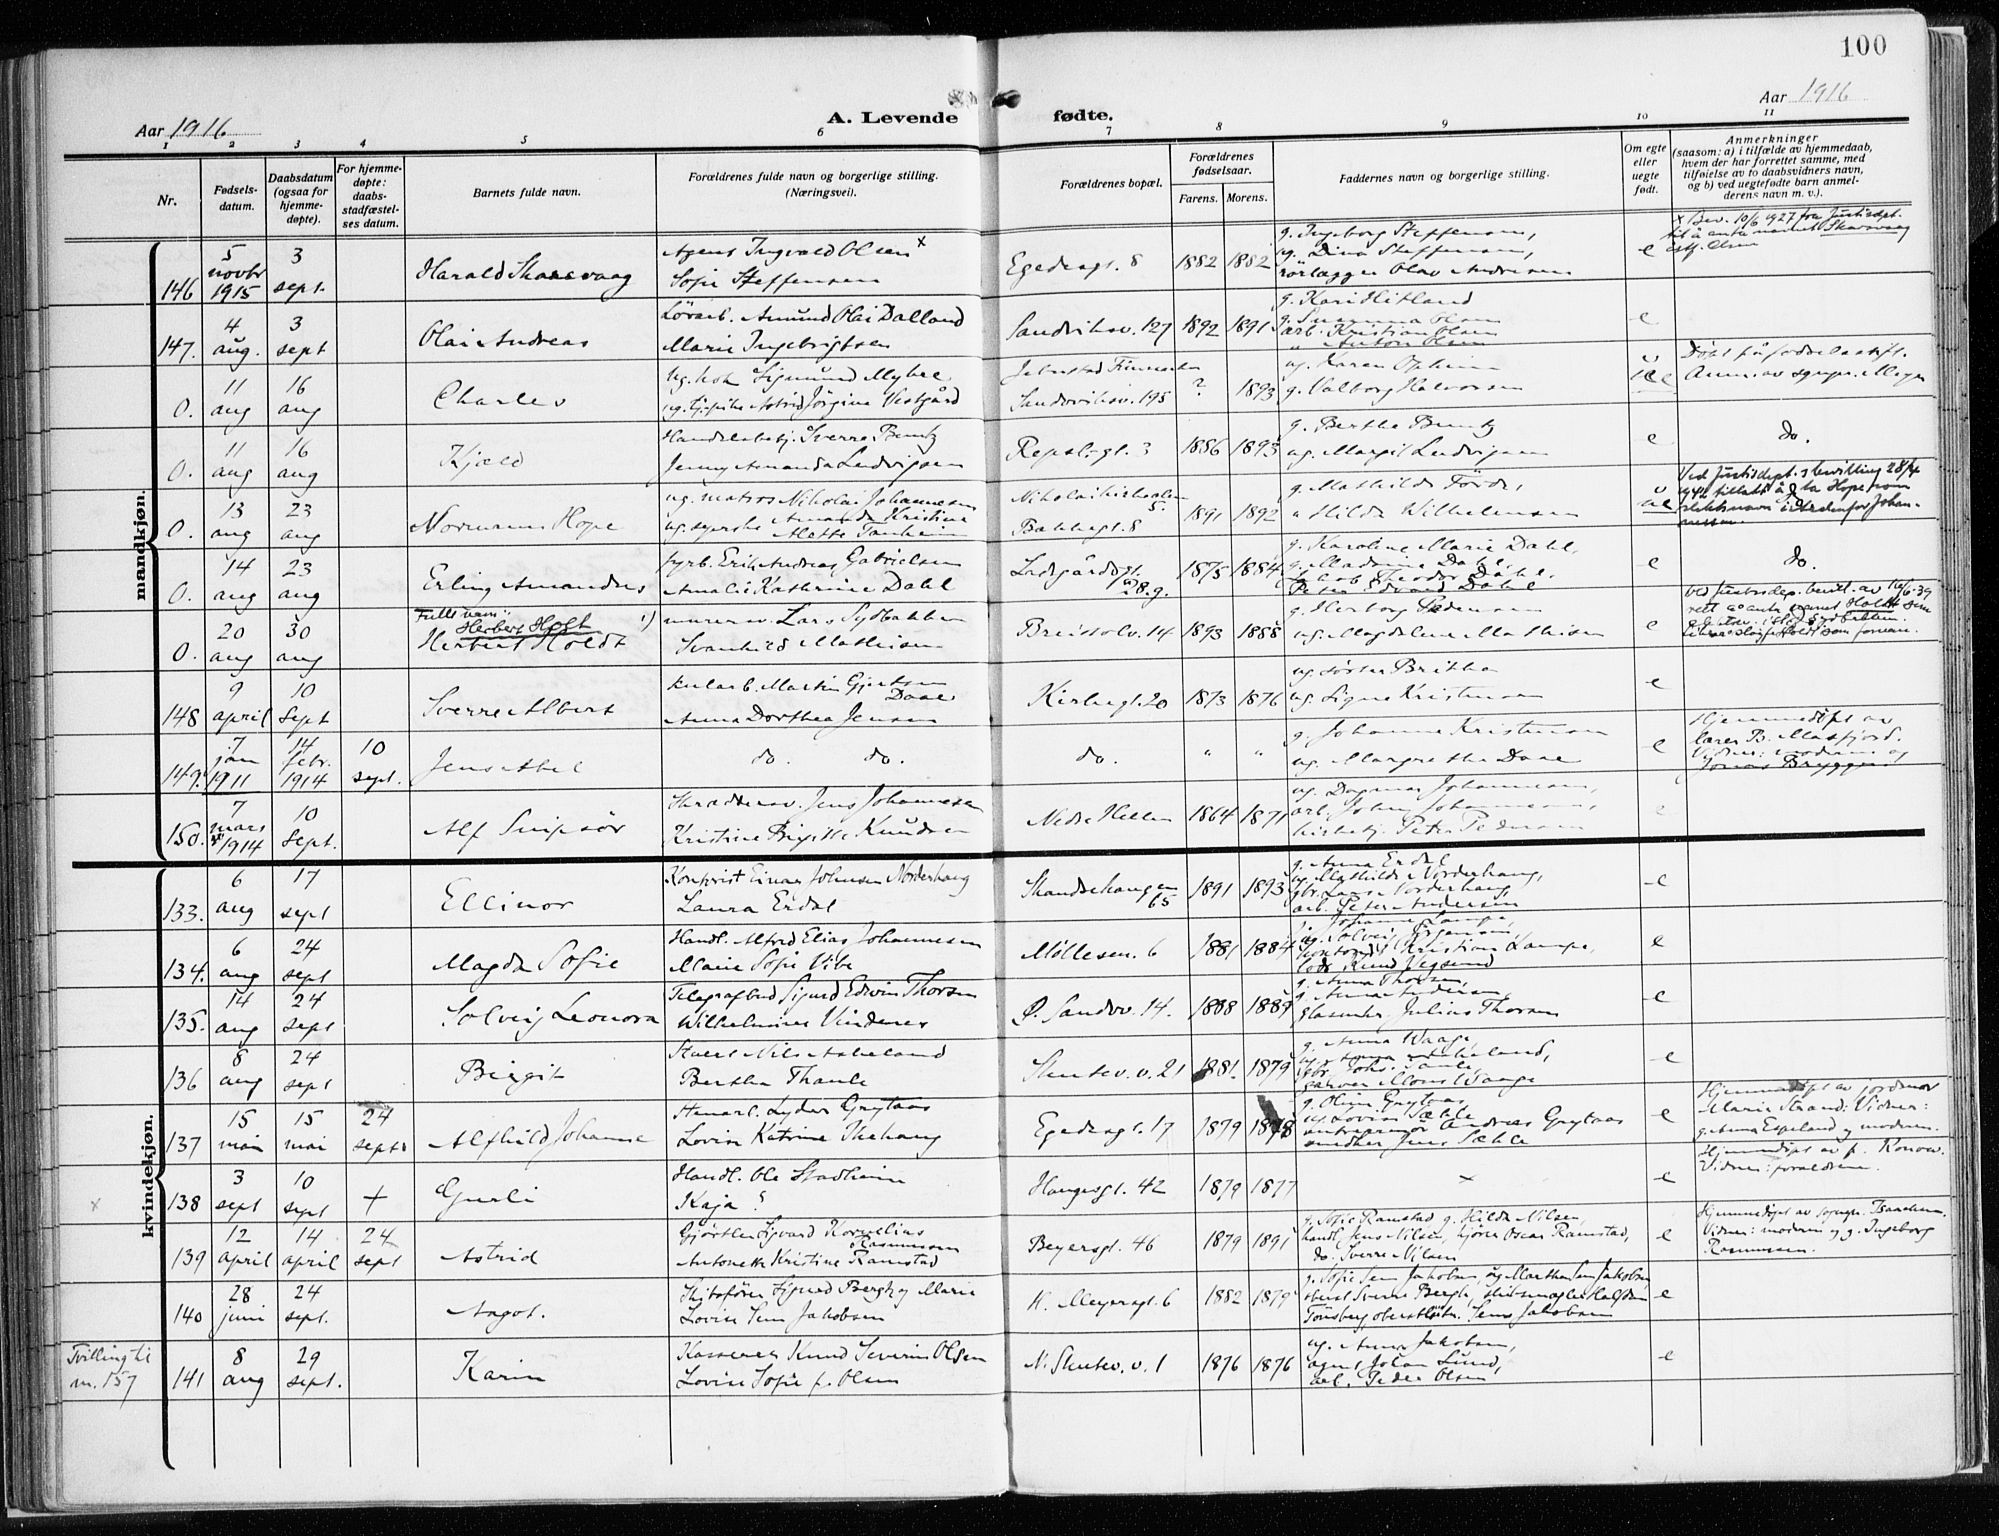 100
Aar 1916
A. Levende fødte.
Aar 1916
1 2 3 4 5 6 7 8 9 10 11
Nr.
Fødsels-
datum.
Daabsdatum
(ogsaa for
hjemme-
døpte).
For hjemme-
døpte:
daabs-
stadfæstel-
ses datum.
Barnets fulde navn.
Forældrenes fulde navn og borgerlige stilling.
(Næringsvei).
Forældrenes bopæl.
Forældrenes
fødselsaar.
Farens. Morens.
Faddernes navn og borgerlige stilling.
Om egte
eller
uegte
født.
Anmerkninger
(saasom: a) i tilfælde av hjemmedaab,
hvem der har forrettet samme, med
tilføielse av to daabsvidners navn,
og b) ved uegtefødte barn anmel-
derens navn m. v.).
mandkjøn.
x Bev. 10/6 1927 fra Justisdept.
til å anta navnet Skarsvaag
istf. Olsen
146 5 novbr 1915 3 sept. Harald Skarsvaag
Agent Ingvald Olsen x
Sofie Steffensen
Egedesgt. 8 1882 1882
g. Ingeborg Steffensen,
ug. Dina Steffensen,
rørlægger Olav Andresen
e
147. 4 aug. 3 sept Olai Andreas
Løsarb. Amund Olai Dalland
Marie Ingebrigtsen
Sandviksv. 127 1892 1891
g. Kari Hitland
g. Susanna Olsen
arb. Kristian Olsen
" Anton Olsen
e
0. 11 aug 16 aug Charles
ug. kok Sigmund Myhre
ug. Astrid Jørgine Vestgård
Sandviksv. 195 ? 1893
ug. Karen
g. Valborg Halvorsen
ue
Døbt på fødselsstift.
Anm. av sgnpr. Meyer
0. 11 aug 16 aug Kjæld
Handelsbetj. Sverre Buntz
Jenny Amanda Ludvigsen
Repslgt. 3 1886 1893
g. Berthe Buntz
ug. Margit Ludvigsen
e
do.
0. 13 aug 23 aug Normann Hope
ug. matros Nikolai Johannesen
ug. syerske Amanda Kristine
Alette Tanheim
Nikolaikirkealm. 5.
Bakkegt. 8 1891 1892
g. Mathilde Førde,
" Hilda Wilhelmsen
ue
Ved Justisdept.s bevilling 28/4
1942 tillatt å ta Hope som
slektsnavn istedenfor Johan-
nessen.
do.
0. 14 aug 23 aug Erling Amandus
fyrb. Erik Andreas Gabrielsen
Amalie Kathrine Dahl
Ladegårdsgt.
28.g. 1875 1884
g. Karoline Marie Dahl,
g. Madrine Dahl,
Jakob Theodor Dahl,
Peter Edvard Dahl
e
do.
0. 20 aug 30 aug
Fullt navn:
Herbert Holt 1)
Herbert Holdt
murersv. Lars Sydbakken
Svanhild Mathisen
Breistølv. 14 1893 1888
g. Herborg Pedersen
ug. Magdalene Mathisen
e
148 9 april 10 Sept Sverre Albert
kularb. Martin Gjertsen
Daae
Anna Dorthea Jensen
Kirkegt. 20 1873 1876
ug. søster Brikka
ug. Signe Kristensen
e
149. 7 jan 1911 14 febr. 1914 10 sept. Jens Abel
do. do.
do. " "
g. Johanne Kristensen
ug. Margrethe Daae
e
Hjemmedøpt av
lærer B. Masfjord.
Vidner: moderen og
Jonas Brygge
150. 7 mars 1914 10 Sept. Alf Snipsør
Skræddersv. Jens Johannesen
Kristine Birgitte Knudsen
Nedre Hellen 1864 1871
ug. Dagmar Johannesen,
arb. John Johannesen,
Peter Pedersen
e
kvindekjøn.
133. 6 aug 17 sept Ellinor
Kontorist Einar Johnsen Norderhaug
Laura Erdal
Skandsehaugen
65 1891 1893
g. Anna Erdal
ug. Mathilde Norderhaug,
gbr. Lars Norderhaug,
arb. Peter Andersen
e
134. 6 aug 24 sept Magda Sofie
Handl. Alfred Elias Johannesen
Marie Sofie Vibe
Møllesm. 6 1881 1884
g. Johanne Lampe,
ug. Solveig Jørgensen,
kontorist Kristian Lampe,
lods Knud Vegsund
e
135. 14 aug 24 sept Solveig Leonora
Telegrafbud Sigurd Edvin Thorsen
Wilhelmine Vindenes
Ø. Sandvv. 14. 1888 1889
g. Anna Thorsen,
g. Anna Andersen,
Glasmker. Julius Thorsen
e
136 8 aug 24 sept Birgit
Stuert Nils Askeland
Bertha Thaule
Skutev. v. 21 1881. 1879
g. Anna Waage,
ug. Anna Askeland,
gbr. Johs. Taule,
garver Mons Waage
e
137 15 mai 15 mai 24 septr Alfhild Johanne
Stenarb. Lyder Grytaas
Lovise Katrine Ekehaug
Egedesgt. 17 1879 1878
g. Oline Grytaas
ug. Lovise Sæhle
entreprenør Andreas Grytaas
snedker Jens Sæhle
e
Hjemmedøpt av jordmor
Marie Strand: Vidner:
g. Anna Espeland og moderen.
x 138 3 sept 10 sept + Gurli
Handl. Ole Stadheim
Kaja ?
Haugesgt. 42 1879 1877 x e
Hjemmedøpt av p. Konow.
Vidner: forældrene.
139 12 april 14 april 24 sept Astrid
Gjørtler Sigvard Kornelius
Rasmussen
Antonette Kristine Ramstad
Beyersgt. 46 1879 1891
g. Sofie Ramstad g. Hilda Nilsen,
handl. Jens Nilsen, kjører Oscar Ramstad,
do. Sverre Nilsen
e
Hjemmedøpt av sognepr. Baachen,
Vidner: moderen og g. Ingeborg
Rasmussen.
140 28 juni 24 sept. Aagot.
Skibsfører Sigurd Bergh og Marie
Lovise Sem Jakobsen
H. Meyersgt. 6 1882 1879
g. Sofie Sem Jakobsen, ug Martha Sem Jakobsen
stud Sverre Bergh, skibsmægler Halfdan
Tønsberg oberstløitn. Sems Jakobsen
e
Tvilling til
nr. 157
141 8 aug 29 sept. Karin
Kasserer Knud Severin Olsen
Lovise Sofie f. Olsen
N. Skutev. v. 1 1876 1876
ug. Anna Jakobsen,
agent Johan Lund,
arb. Peder Olsen,
e